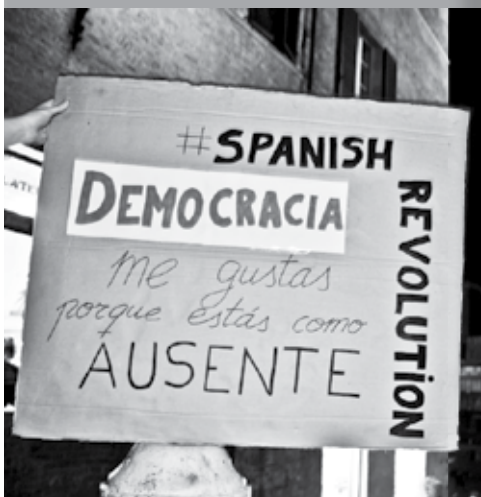 #SPANISH
REVOLUTiON
DEMOCRACIA
me gustas
porque estás como
AUSENTE